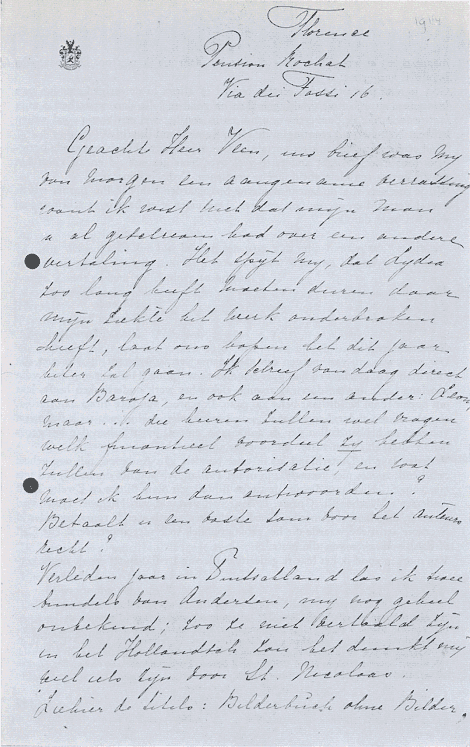 1914
Florence
Pension Rochat
Via dei Fossi 16.
Geachte Heer Veen, uw brief was my
van morgen een aangename verrassing
want ik wist niet dat mijn man
u al geschreven had over een andere
vertaling. Het spijt my, dat Lydia
zoo lang heeft moeten duren daar
mijn ziekte het werk onderbroken
heeft, laat ons hopen het dit jaar
beter zal gaan. Ik schreef vandaag direct
aan Baroja, en ook aan een ander:
maar ... die heeren zullen wel vragen
welk financieel voordeel zy hebben
zullen van de autorisatie! en wat
moet ik hun dan antwoorden?
Betaalt u een vaste som voor het auteurs
recht?
Verleden jaar in Duitschland las ik twee
bundels van Andersen, my nog geheel
onbekend; zoo ze niet vertaald zyn
in het Hollandsch zou het dunkt my
wel iets zyn voor St. Nicolaas.
Ziehier de titels: Bilderbuch ohne Bilder,